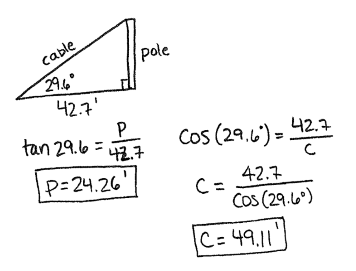 cable
pole
29.6°
42.7'
tan 29.6 = P/42.7
P = 24.26'
Cos (29.6°) = 42.7/C
C = 42.7/Cos(29.6°)
C = 49.11'